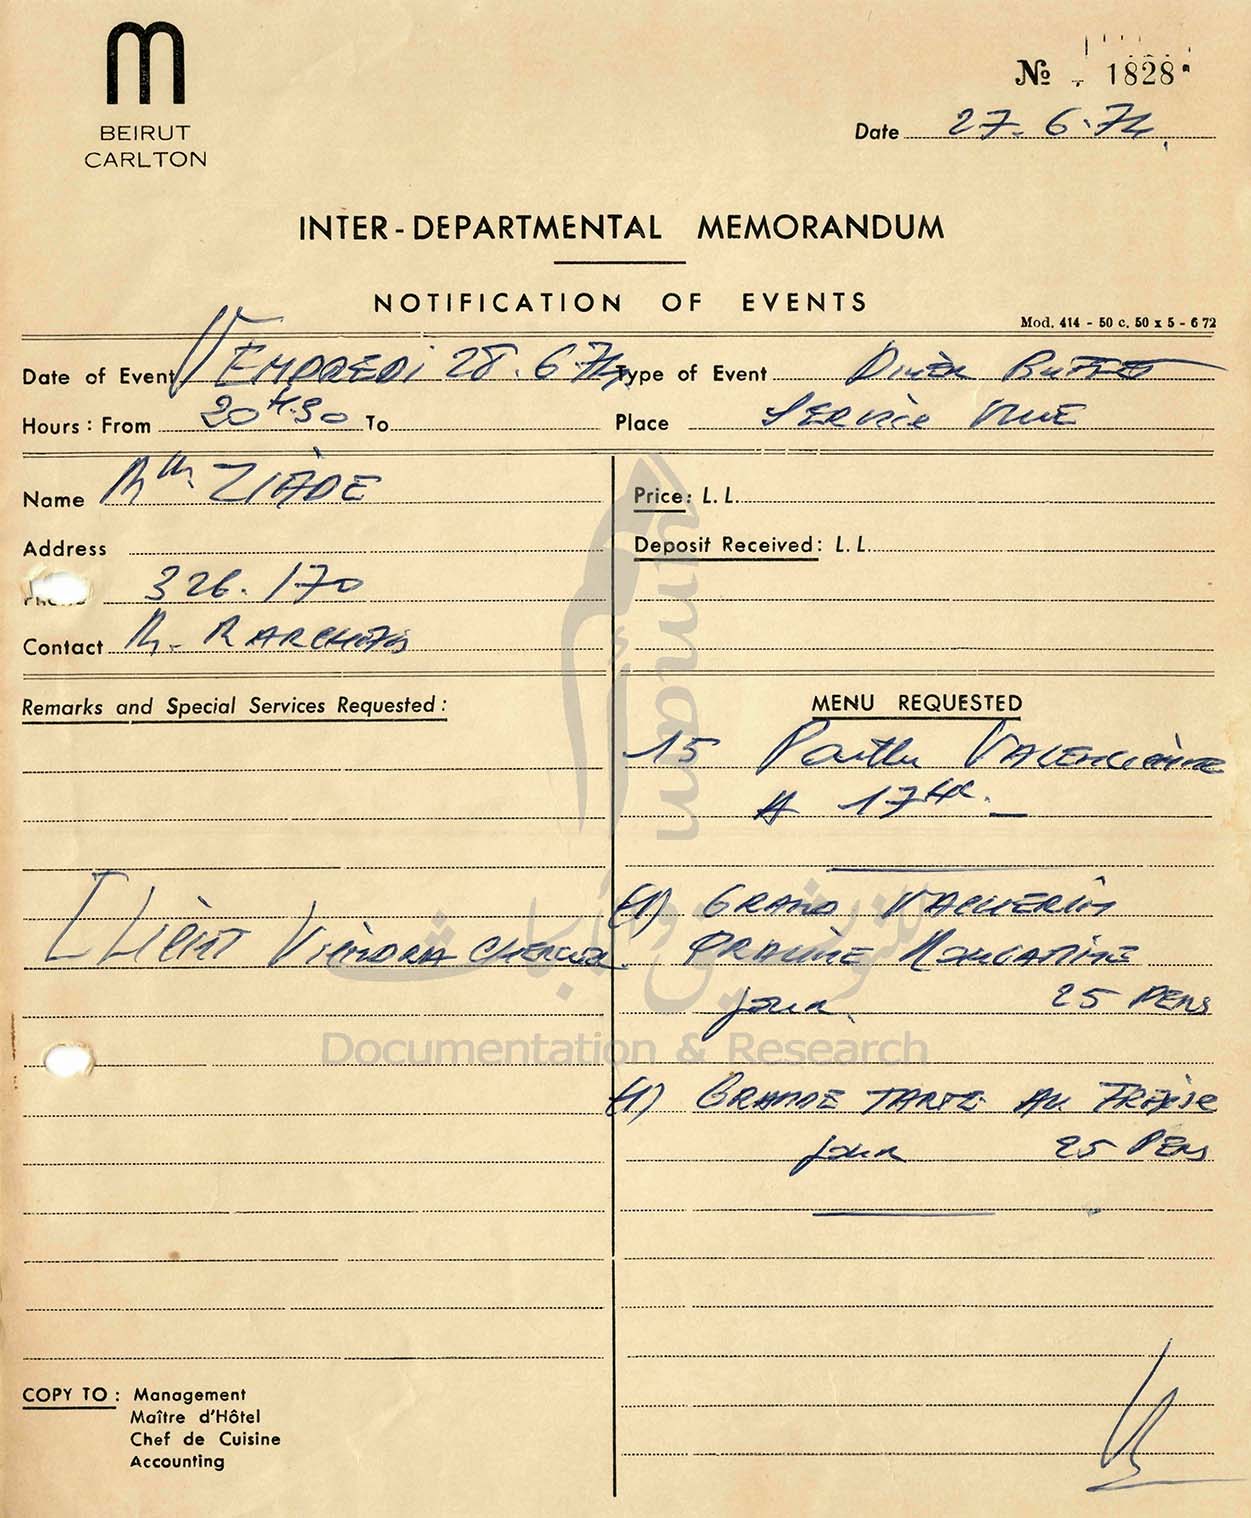 m
BEIRUT
CARLTON
Nº 1828
Date 27.6.74
INTER-DEPARTMENTAL MEMORANDUM
NOTIFICATION OF EVENTS
Mod. 414 - 50 c. 50 x 5 - 6 72
Date of Event VENDREDI 28.6.74 Type of Event Dinèr Buffet
Hours: From 20H.30 To Place SERVice VILLE
Name ZIADE
Price: L.L.
Address
Deposit Received: L.L.
326.170
Contact M.
Remarks and Special Services Requested:
MENU REQUESTED
15 VALENCIènne
A 17
(1) GRAND VACHERIN
PRALINE
pour 25 PERS
Client Viendra CHERCHER
(1) GRANDE TARTE AU FRAISE
pour 25 PERS
COPY TO: Management
Maître d'Hôtel
Chef de Cuisine
Accounting
umam
للتوثيق والأبحاث
Documentation & Research